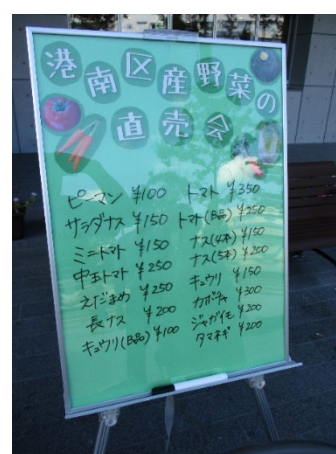 港南区産野菜の
直売会
ピーマン ¥100
サラダナス ¥150
ミニトマト ¥150
中玉トマト ¥250
えだまめ ¥250
長ナス ¥200
キュウリ(B品) ¥100
トマト ¥350
トマト(B品) ¥250
ナス(4本) ¥150
ナス(5本) ¥200
キュウリ ¥150
カボチャ ¥300
ジャガイモ ¥200
タマネギ ¥200